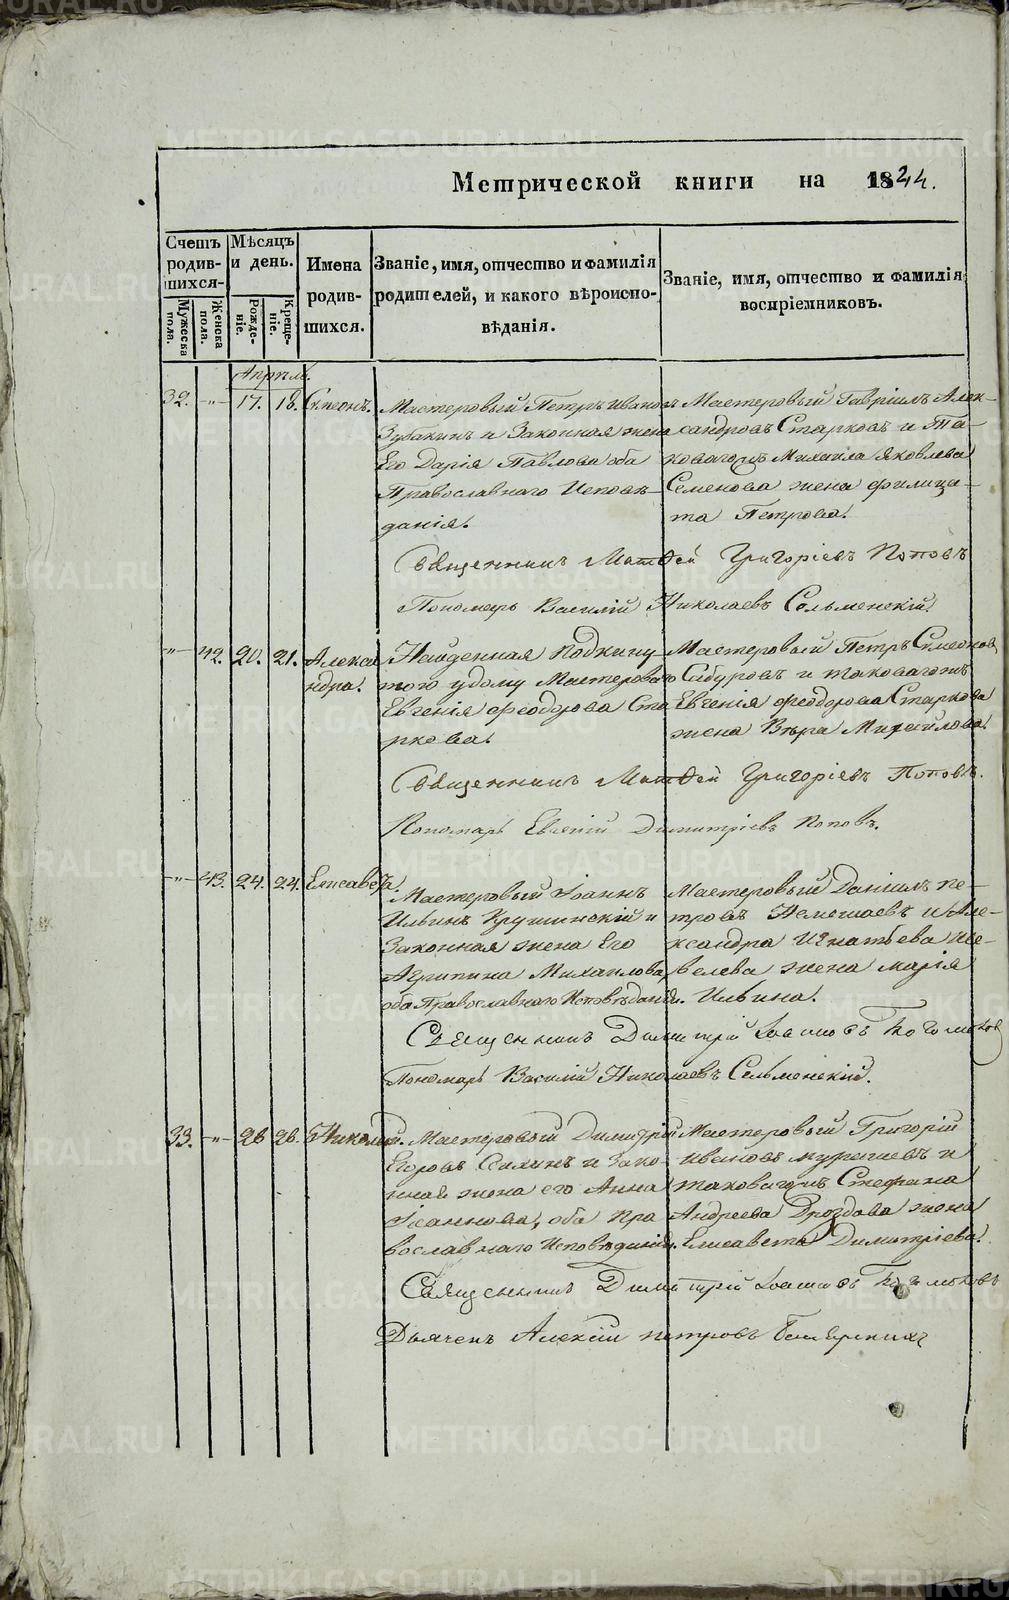 Метрической книги на 1844.
Счетъ родив-шихся.
Мужеска пола.
Женска пола.
Мѣсяцъ и день.
Рожде-ніе.
Креще-ніе.
Имена
родив-
шихся.
Званіе, имя, отчество и фамилія
родителей, и какого вѣроиспо-
вѣданія.
Званіе, имя, отчество и фамилія
воспріемниковъ.
Апрѣль.
32. -"- 17. 18. Симеонъ.
Мастеровый Петръ Ивановъ
Зубакинъ и Законная жена
Его Дарія Павлова оба
Православнаго Исповѣ-
данія.
Мастеровый Гавріилъ Алек-
сандровъ Старковъ и Та-
коваго жъ Михаила Яковлева
Семенова жена Филица-
та Петрова.
Священникъ Матѳей Григоріевъ Поповъ
Пономарь Василій Николаевъ Сельменскій.
-"- 42. 20. 21. Алекса
ндра.
Найденная Подкину
тою у дому Мастероваго
Евгенія Феодорова Ста
ркова.
Мастеровый Петръ Симеонов
Сабуровъ и таковагожъ
Евгенія Феодорова Старкова
жена Вѣра Михайлова.
Священникъ Матѳей Григоріевъ Поповъ.
Пономарь Евгеній Димитріевъ Поповъ.
-"- 43. 24. 24. Елисавета.
Мастеровый Іоаннъ
Ильинъ Крушинскій и
Законная жена Его
Агрипина Михаилова
оба Православнаго Исповѣданія.
Мастеровый Даніилъ пе-
тровъ Немешаевъ и Але-
ксандра Игнатьева Ше-
велева жена Марія
Ильина.
Священникъ Димитрій
Пономарь Василій Николаевъ Сельменскій.
33. -"- 26 26. Николай.
Мастеровый Димитрій
Егоровъ и Зако-
нная жена его Анна
Іоаннова, оба Пра
вославнаго Исповѣданія.
Мастеровый Григорій
Ивановъ и
таковагожъ Стефана
Андреева Дроздова жена
Елисавета Димитріева.
Священникъ Димитрій
Дьячекъ Алексій Петровъ
METRIKI.GASO-URAL.RU